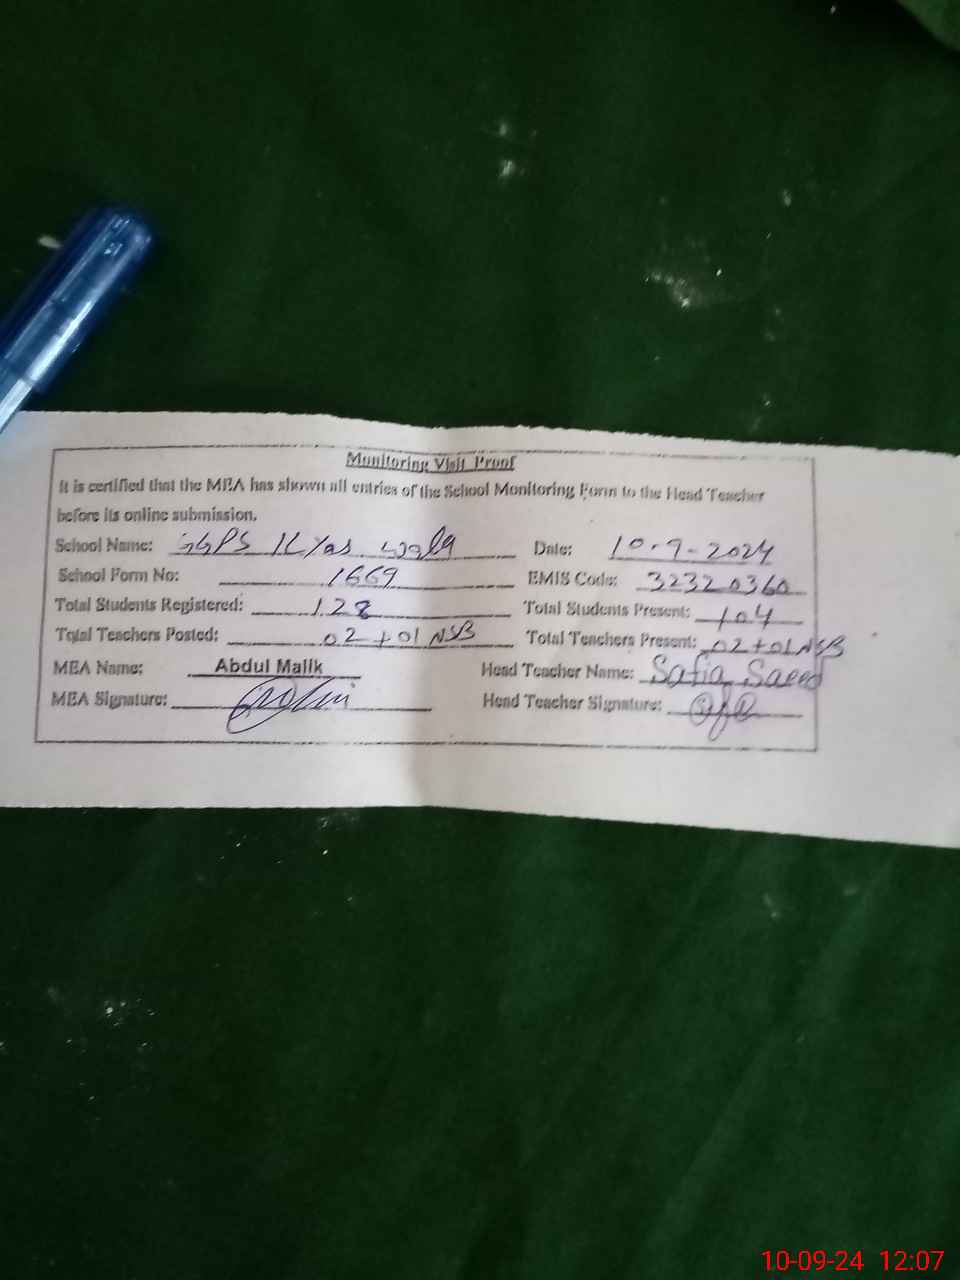 Monitoring Visit Proof
It is certified that the MEA has shown all entries of the School Monitoring Form to the Head Teacher
before its online submission.
School Name: GGPS ILYas wala Date: 10-9-2024
School Form No: 1669 EMIS Code: 32320360
Total Students Registered: 128 Total Students Present: 104
Total Teachers Posted: 02+01 NSB Total Teachers Present: 02+01 NSB
MEA Name: Abdul Malik Head Teacher Name: Safia Saeed
MEA Signature: Head Teacher Signature:
10-09-24 12:07